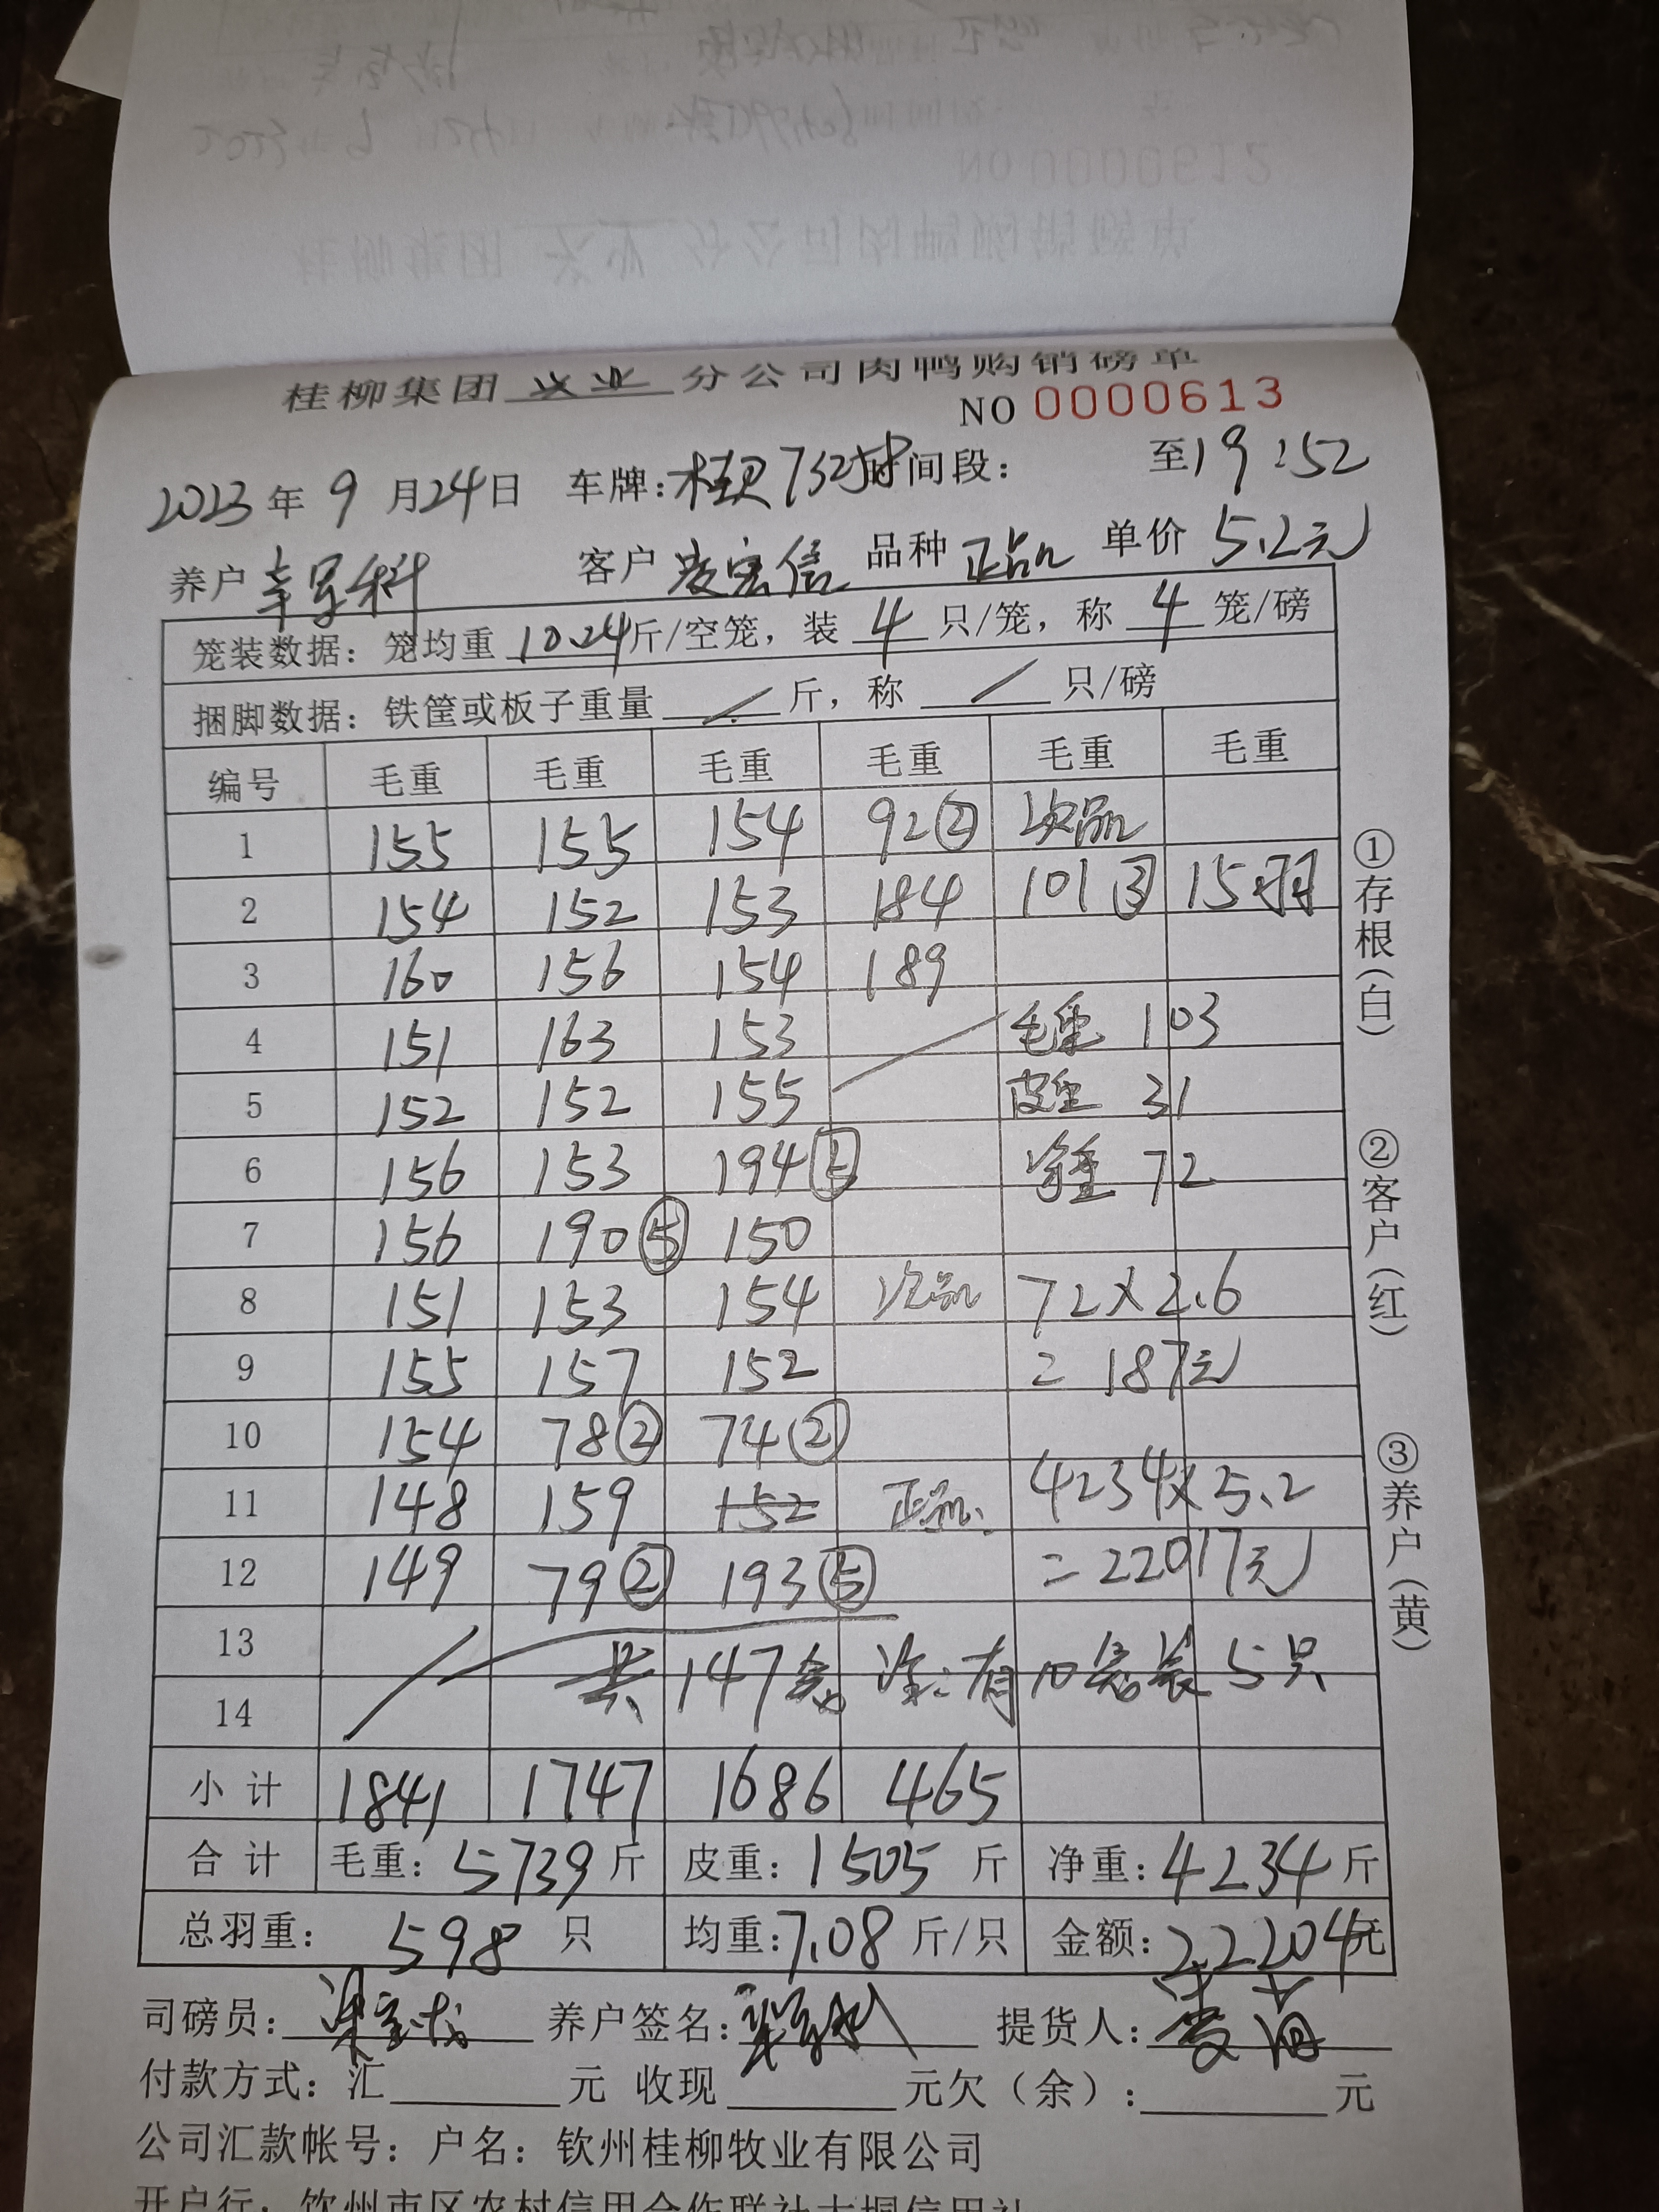 桂柳集团 兴业 分公司肉鸭购销磅单
NO 0000613
2023 年 9 月 24 日 车牌: 时间段: 至 19:52
养户 客户 凌宏信 品种 正品 单价 5.2元
笼装数据: 笼均重 10.24 斤/空笼, 装 4 只/笼, 称 4 笼/磅
捆脚数据: 铁筐或板子重量 / 斤, 称 / 只/磅
编号 毛重 毛重 毛重 毛重 毛重 毛重
1 155 155 154 92② 次品
2 154 152 153 184 101③ 15羽
3 160 156 154 189
4 151 163 153 毛重 103
5 152 152 155 皮重 31
6 156 153 194⑤ 净重 72
7 156 190⑤ 150
8 151 153 154 次品 72×2.6
9 155 157 152 = 187元
10 154 78② 74②
11 148 159 152 正品 4234×5.2
12 149 79② 193⑤ = 22017元
13 共 147笼 注: 有10笼装5只
14
小 计 1841 1747 1686 465
合 计 毛重: 5739 斤 皮重: 1505 斤 净重: 4234 斤
总羽重: 598 只 均重: 7.08 斤/只 金额: 22204元
司磅员: 养户签名: 提货人:
付款方式: 汇 元 收现 元欠(余): 元
公司汇款帐号: 户名: 钦州桂柳牧业有限公司
开户行: 钦州市区农村信用合作联社大垌信用社
①存根(白) ②客户(红) ③养户(黄)